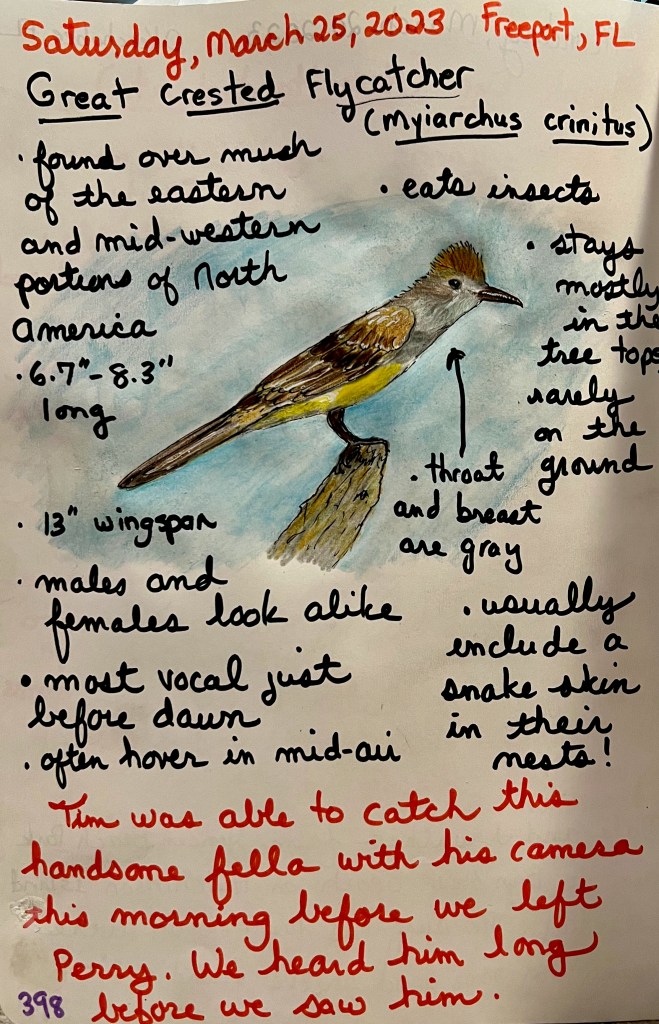 Saturday, March 25, 2023 Freeport, FL
Great Crested Flycatcher
(Myiarchus crinitus)
• found over much
of the eastern
and mid-western
portions of North
America
• 6.7"-8.3"
long
• 13" wingspan
• males and
females look alike
• most vocal just
before dawn
• often hover in mid-air
• eats insects
• stays
mostly
in the
tree tops,
rarely
on the
ground
• throat
and breast
are gray
• usually
include a
snake skin
in their
nests!
Tim was able to catch this
handsome fella with his camera
this morning before we left
Perry. We heard him long
before we saw him.
398